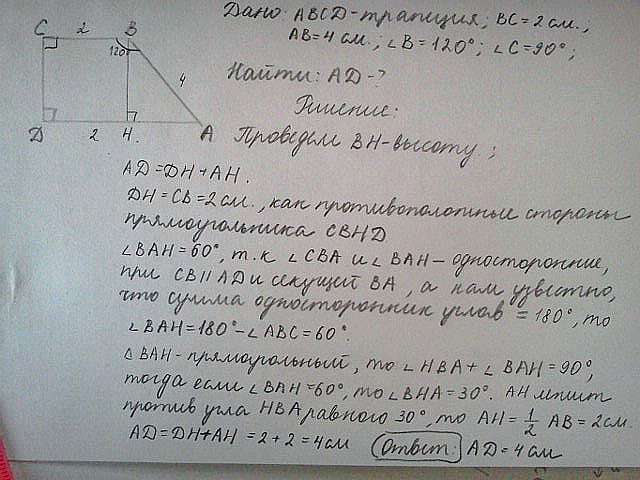 Дано: ABCD-трапиция; BC=2см.;
AB=4см.; ∠B=120°; ∠C=90°;
Найти: AD-?
Решение:
Проведем BH-высоту.;
C 2 B
120°
4
D 2 H. A
AD=DH+AH.
DH=CB=2см., как противоположные стороны
прямоугольника CBHD
∠BAH=60°, т.к ∠CBA и ∠BAH-односторонние,
при CB||AD и секущей BA, а нам узвестно,
что сумма односторонних углов =180°, то
∠BAH=180°-∠ABC=60°.
△BAH-прямоугольный, то ∠HBA+∠BAH=90°,
тогда если ∠BAH=60°, то ∠BHA=30°. AH лежит
против угла HBA равного 30°, то AH=1/2 AB=2см.
AD=DH+AH=2+2=4см Ответ: AD=4см